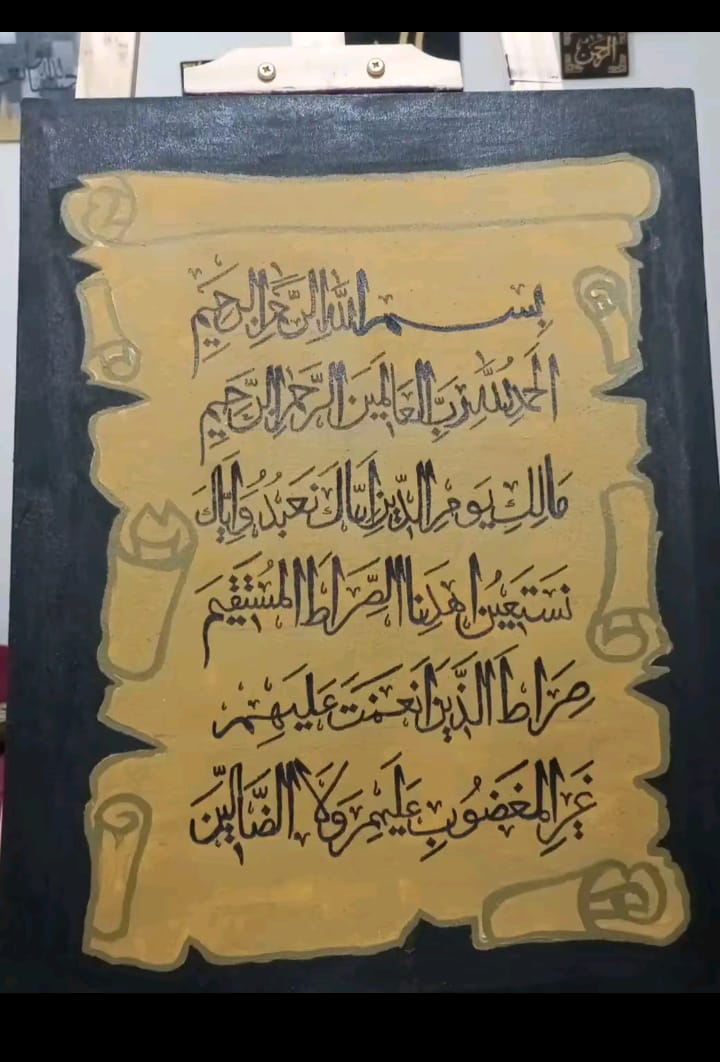 بسم الله الرحمن الرحيم
الحمد لله رب العالمين الرحمن الرحيم
مالك يوم الدين إياك نعبد وإياك
نستعين اهدنا الصراط المستقيم
صراط الذين أنعمت عليهم
غير المغضوب عليهم ولا الضالين
الرحمن